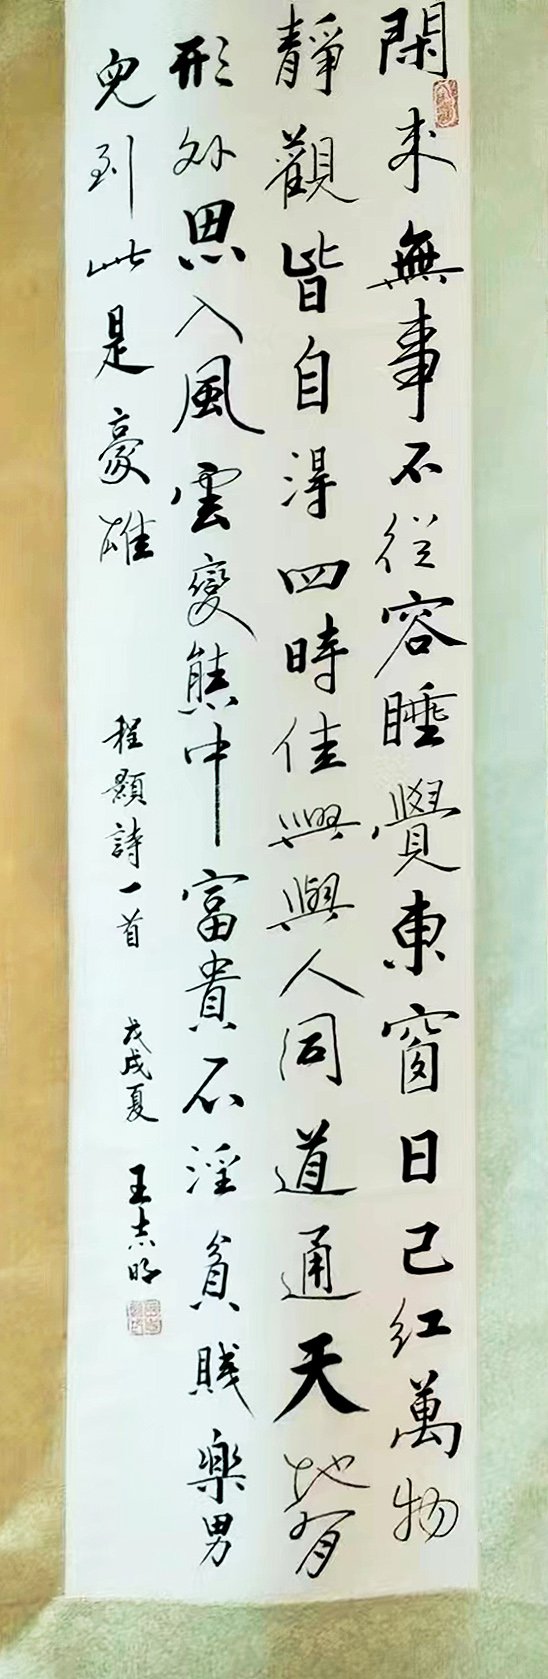 閑来無事不従容睡覺東窗日己紅萬物
靜觀皆自得四時佳興與人同道通天地有
形外思入風雲變態中富貴不淫貧賤樂男
兒到此是豪雄
程顥詩一首
戊戌夏
王志明